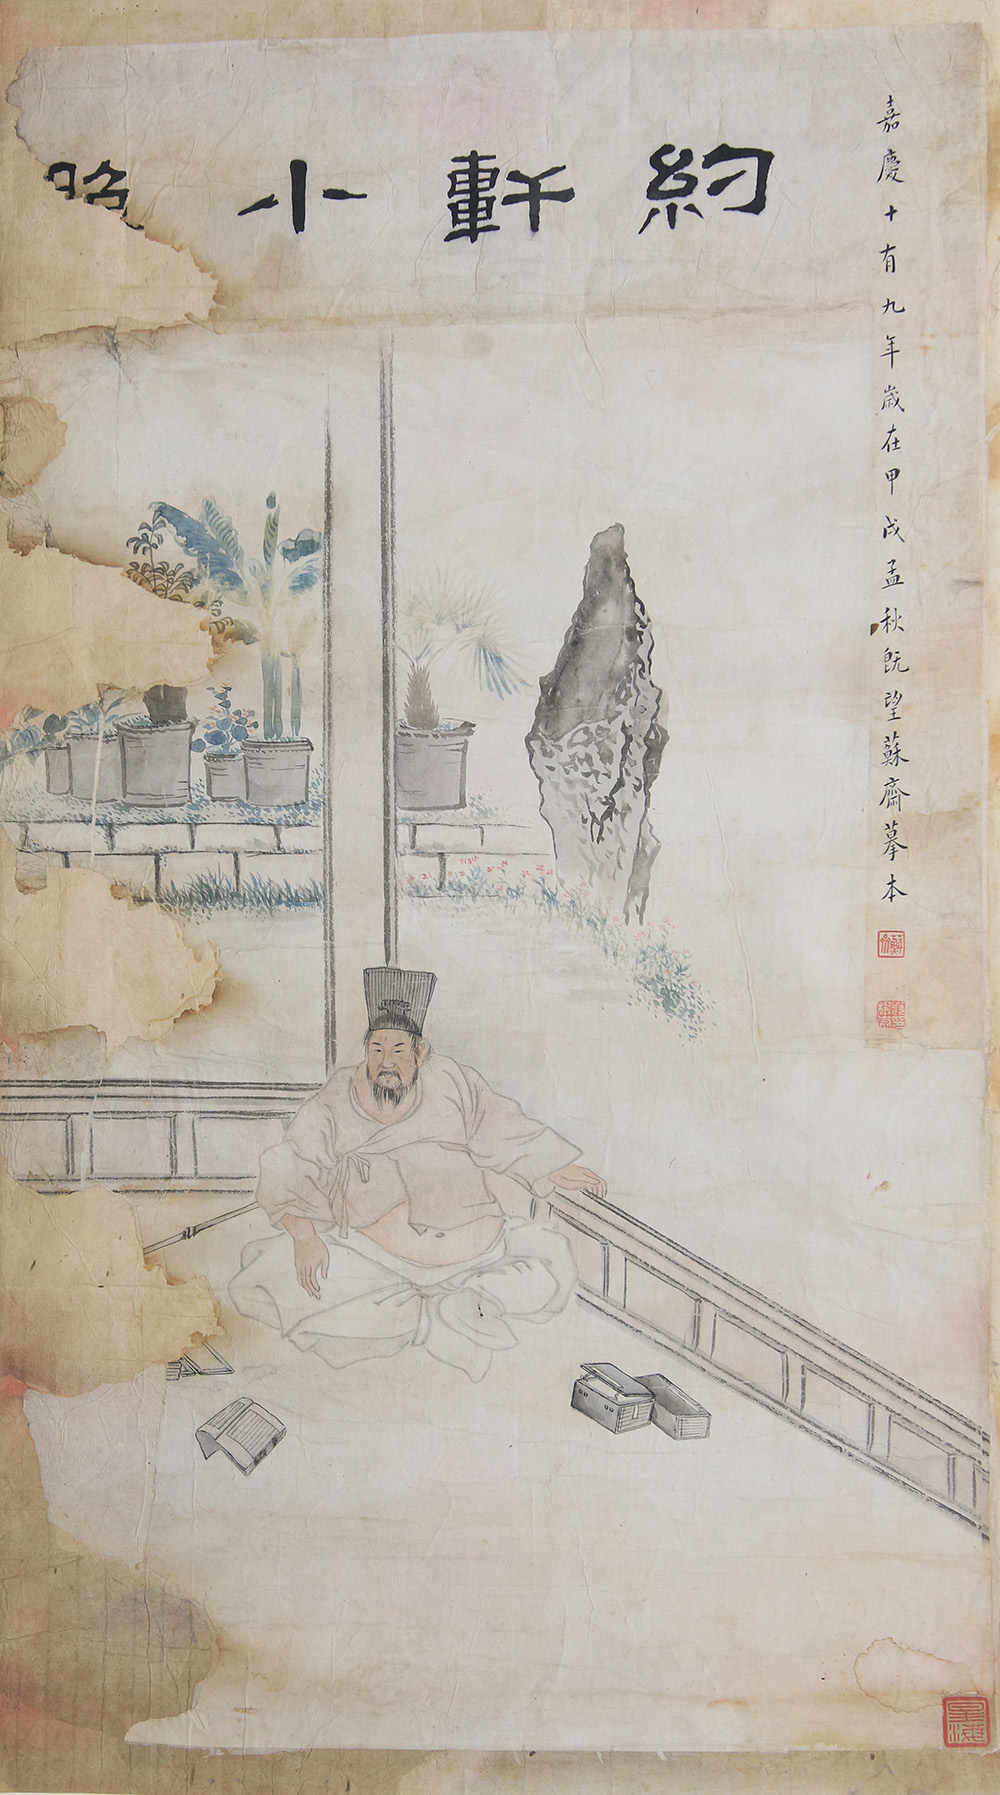 約軒小照
嘉慶十有九年歲在甲戌孟秋既望蘇齋摹本